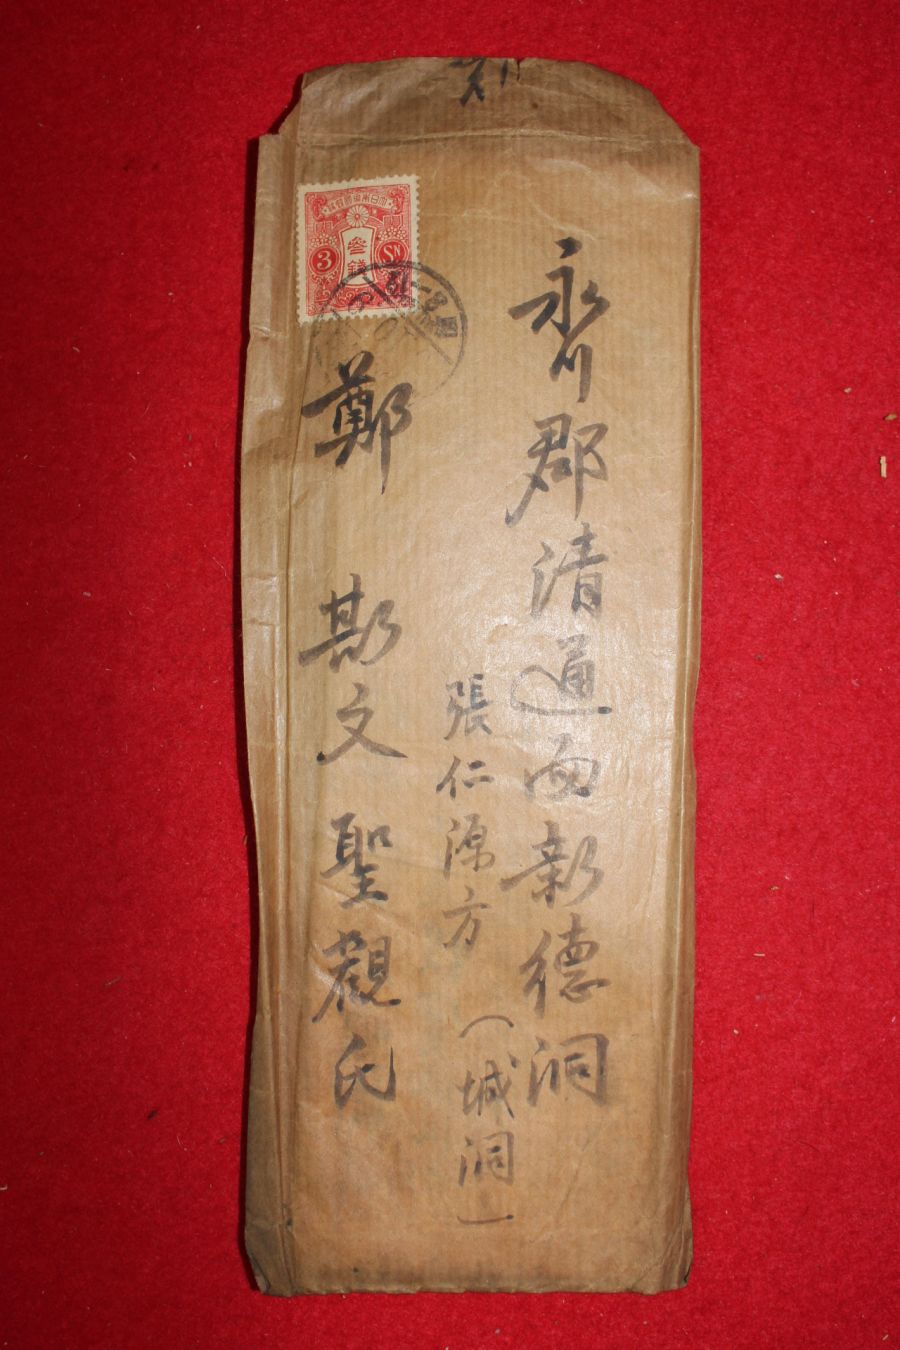 永川郡清通面新德洞
張仁源方（城洞）
鄭 斯文聖觀氏
大日本帝國郵便
參錢
3 SN